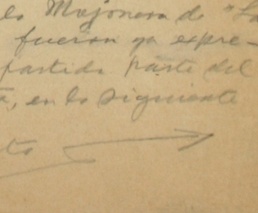 Majonera de "La
fueron ya expre-
partida parte del
, en lo siguiente